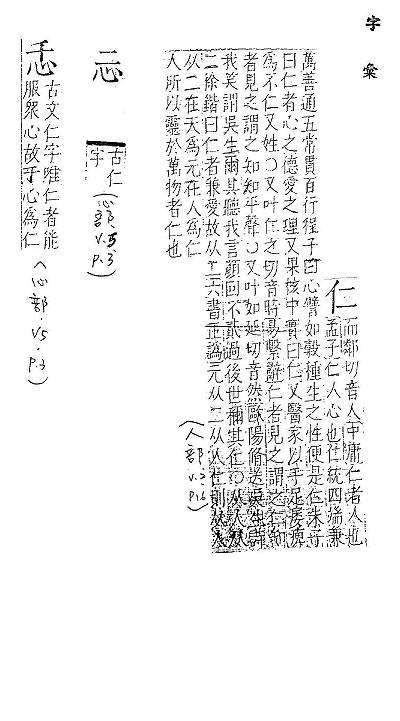 字彙
仁
而鄰切音人中庸仁者人也
孟子仁人心也仁統四端兼
萬善通五常貫百行程子曰心譬如穀種生之性便是仁朱子
曰仁者心之德愛之理又果核中實曰仁又醫家以手足痿痹
爲不仁又姓〇又叶
切音時易繫辭仁者見之謂之仁知
者見之謂之知知平聲〇又叶如延切音然歐陽脩送吳生詩
我笑謂吳生爾其聽我言顏回不貳過後世稱其仁〇
二徐鍇曰仁者兼愛故从二六書正譌元从二从人
从二在天爲元在人爲仁
人所以靈於萬物者仁也
(人部
V.3
P.6)
忈
古仁
字
(心部
V.5
P.3)
忎
古文仁字唯仁者能
服眾心故于心爲仁
(心部 V.5
P.3)